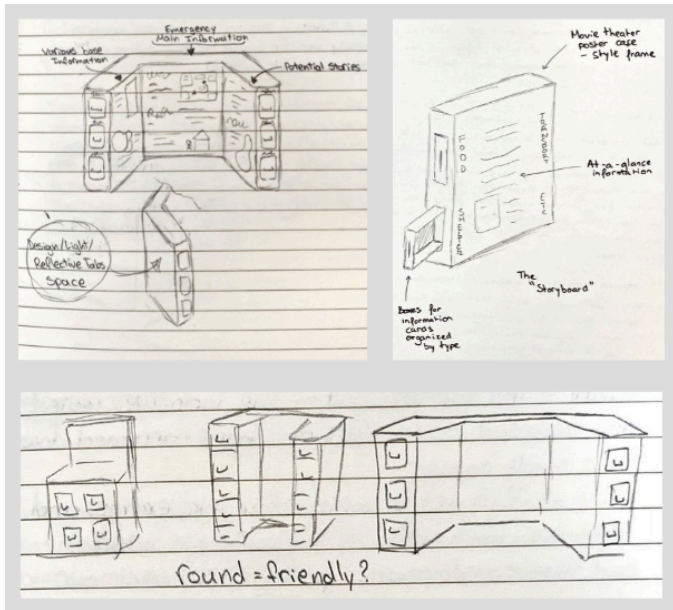 Emergency
Main Information
Various base
Information
Potential Stories
Design/Light/
Reflective Tabs
Space
Movie theater
poster case
- style frame
FOOD
SHELTER
TRANSPORT
ETC
At-a-glance
information
The
"Storyboard"
Boxes for
information
cards
organized
by type
round = friendly?